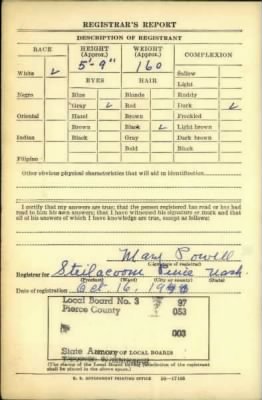 REGISTRAR'S REPORT
DESCRIPTION OF REGISTRANT
RACE HEIGHT (Approx.) WEIGHT (Approx.) COMPLEXION
5'-9" 160
White ✓ Sallow
EYES HAIR Light
Negro Blue Blonde Ruddy
Gray ✓ Red Dark ✓
Oriental Hazel Brown Freckled
Brown Black ✓ Light brown
Indian Black Gray Dark brown
Bald Black
Filipino
Other obvious physical characteristics that will aid in identification
I certify that my answers are true; that the person registered has read or has had
read to him his own answers; that I have witnessed his signature or mark and that
all of his answers of which I have knowledge are true, except as follows:
Mary Powell
(Signature of registrar)
Registrar for Steilacoom Pierce Wash.
(Precinct) (City or county) (State)
Date of registration Oct. 16, 1940
Local Board No. 3 97
Pierce County 053
003
State Armory
OF LOCAL BOARDS
(The stamp of the Local Board having jurisdiction of the registrant
shall be placed in the above space.)
U. S. GOVERNMENT PRINTING OFFICE 16—17105